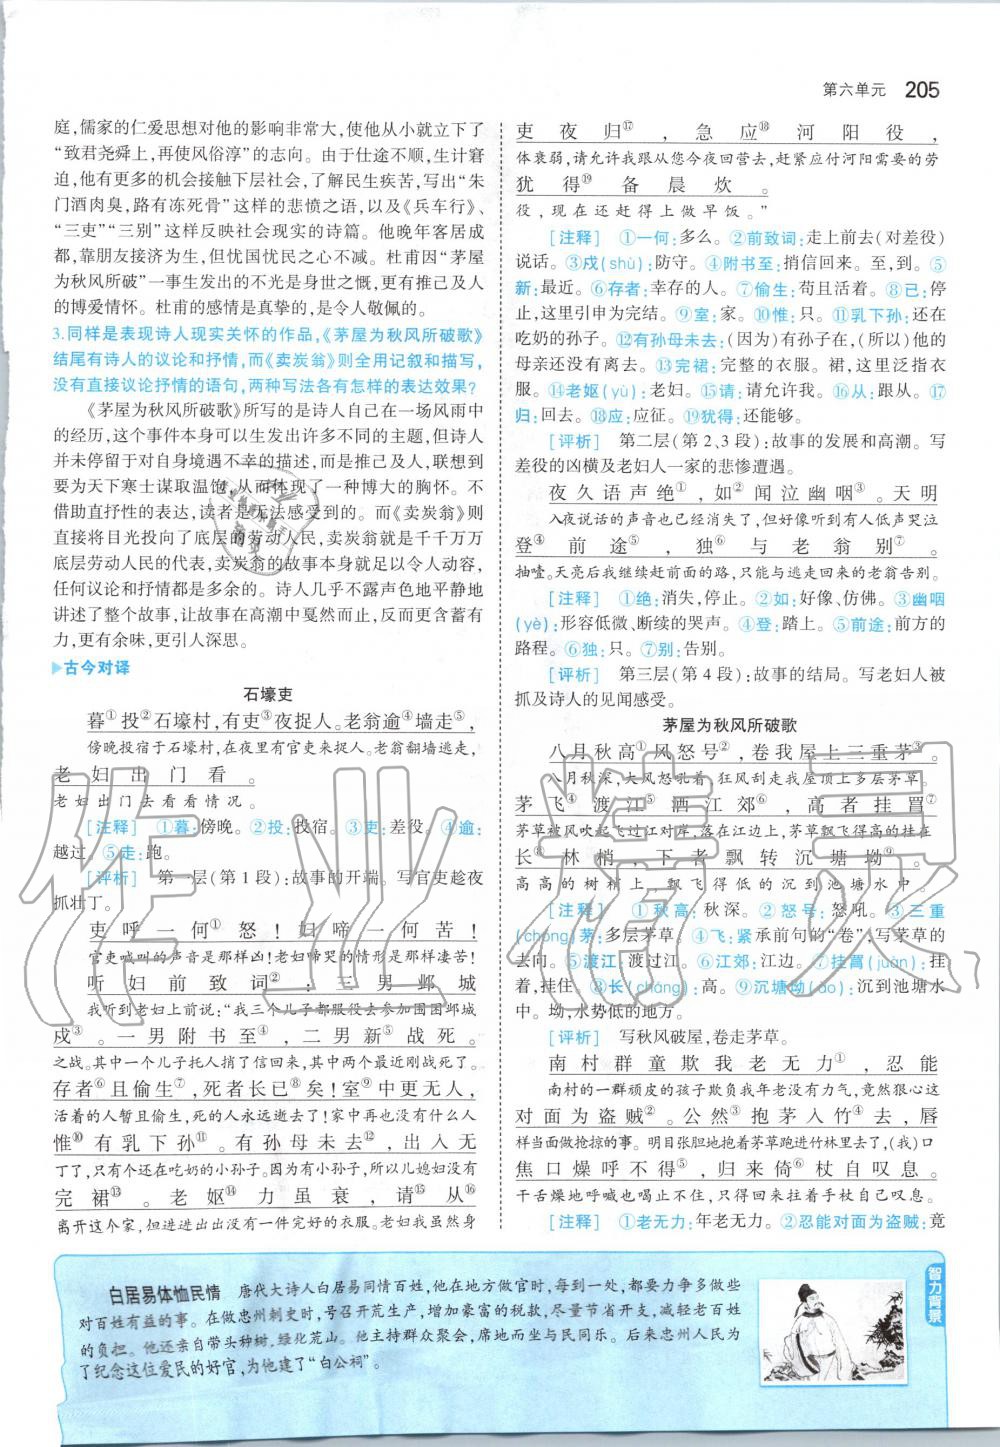 第六单元 205
庭,儒家的仁爱思想对他的影响非常大,使他从小就立下了
“致君尧舜上,再使风俗淳”的志向。由于仕途不顺,生计窘
迫,他有更多的机会接触下层社会,了解民生疾苦,写出“朱
门酒肉臭,路有冻死骨”这样的悲愤之语,以及《兵车行》、
“三吏”“三别”这样反映社会现实的诗篇。他晚年客居成
都,靠朋友接济为生,但忧国忧民之心不减。杜甫因“茅屋
为秋风所破”一事生发出的不光是身世之慨,更有推己及人
的博爱情怀。杜甫的感情是真挚的,是令人敬佩的。
3.同样是表现诗人现实关怀的作品,《茅屋为秋风所破歌》
结尾有诗人的议论和抒情,而《卖炭翁》则全用记叙和描写,
没有直接议论抒情的语句,两种写法各有怎样的表达效果?
《茅屋为秋风所破歌》所写的是诗人自己在一场风雨中
的经历,这个事件本身可以生发出许多不同的主题,但诗人
并未停留于对自身境遇不幸的描述,而是推己及人,联想到
要为天下寒士谋取温饱,从而体现了一种博大的胸怀。不
借助直抒性的表达,读者是无法感受到的。而《卖炭翁》则
直接将目光投向了底层的劳动人民,卖炭翁就是千千万万
底层劳动人民的代表,卖炭翁的故事本身就足以令人动容,
任何议论和抒情都是多余的。诗人几乎不露声色地平静地
讲述了整个故事,让故事在高潮中戛然而止,反而更含蓄有
力,更有余味,更引人深思。
▶古今对译
石壕吏
暮①投②石壕村,有吏③夜捉人。老翁逾④墙走⑤,
傍晚投宿于石壕村,在夜里有官吏来捉人。老翁翻墙逃走,
老妇出门看。
老妇出门去看看情况。
[注释] ①暮:傍晚。②投:投宿。③吏:差役。④逾:
越过。⑤走:跑。
[评析] 第一层(第1段):故事的开端。写官吏趁夜
抓壮丁。
吏呼一何①怒!妇啼一何苦!
官吏喊叫的声音是那样凶!老妇啼哭的情形是那样凄苦!
听妇前致词②:三男邺城
我听到老妇走上前说:“我三个儿子都服役去参加围困邺城
戍③。一男附书至④,二男新⑤战死。
之战。其中一个儿子托人捎了信回来,其中两个最近刚战死了。
存者⑥且偷生⑦,死者长已⑧矣!室⑨中更无人,
活着的人暂且偷生,死的人永远逝去了!家中再也没有什么人
惟⑩有乳下孙⑪。有孙母未去⑫,出入无
丁了,只有个还在吃奶的小孙子。因为有小孙子,所以儿媳妇没有
完裙⑬。老妪⑭力虽衰,请⑮从⑯
离开这个家,但进进出出没有一件完好的衣服。老妇我虽然身
吏夜归⑰,急应⑱河阳役,
体衰弱,请允许我跟从您今夜回营去,赶紧应付河阳需要的劳
犹得⑲备晨炊。
役,现在还赶得上做早饭。”
[注释] ①一何:多么。②前致词:走上前去(对差役)
说话。③戍(shù):防守。④附书至:捎信回来。至,到。⑤
新:最近。⑥存者:幸存的人。⑦偷生:苟且活着。⑧已:停
止,这里引申为完结。⑨室:家。⑩惟:只。⑪乳下孙:还在
吃奶的小孙子。⑫有孙母未去:(因为)有小孙子在,(所以)他的
母亲还没有离去。⑬完裙:完整的衣服。裙,这里泛指衣
服。⑭老妪(yù):老妇。⑮请:请允许我。⑯从:跟从。⑰
归:回去。⑱应:应征。⑲犹得:还能够。
[评析] 第二层(第2、3段):故事的发展和高潮。写
差役的凶横及老妇人一家的悲惨遭遇。
夜久语声绝①,如②闻泣幽咽③。天明
入夜说话的声音也已经消失了,但好像听到有人低声哭泣
登④前途⑤,独⑥与老翁别⑦。
抽噎。天亮后我继续赶前面的路,只能与逃走回来的老翁告别。
[注释] ①绝:消失,停止。②如:好像、仿佛。③幽咽
(yè):形容低微、断续的哭声。④登:踏上。⑤前途:前方的
路程。⑥独:只。⑦别:告别。
[评析] 第三层(第4段):故事的结局。写老妇人被
抓及诗人的见闻感受。
茅屋为秋风所破歌
八月秋高①风怒号②,卷我屋上三重茅③。
八月秋深,大风怒吼着,狂风刮走我屋顶上多层茅草。
茅飞④渡江⑤洒江郊⑥,高者挂罥⑦
茅草被风吹起飞过江对岸,落在江边上,茅草飞得高的挂在
长⑧林梢,下者飘转沉塘坳⑨。
高高的树梢上,飘飞得低的沉到池塘水中。
[注释] ①秋高:秋深。②怒号:怒吼。③三重
(chóng)茅:多层茅草。④飞:紧承前句的“卷”,写茅草的
去向。⑤渡江:渡过江。⑥江郊:江边。⑦挂罥(juàn):挂
着,挂住。⑧长(cháng):高。⑨沉塘坳(ào):沉到池塘水
中。坳,水势低的地方。
[评析] 写秋风破屋,卷走茅草。
南村群童欺我老无力①,忍能
南村的一群顽皮的孩子欺负我年老没有力气,竟然狠心这
对面为盗贼②。公然③抱茅入竹④去,唇
样当面做抢掠的事。明目张胆地抱着茅草跑进竹林里去了,(我)口
焦口燥呼不得⑤,归来倚⑥杖自叹息。
干舌燥地呼喊也喝止不住,只得回来拄着手杖自己叹息。
[注释] ①老无力:年老无力。②忍能对面为盗贼:竟
智力背景
白居易体恤民情 唐代大诗人白居易同情百姓,他在地方做官时,每到一处,都要力争多做些
对百姓有益的事。在做忠州刺史时,号召开荒生产,增加豪富的税款,尽量节省开支,减轻老百姓
的负担。他还亲自带头种树,绿化荒山。他主持群众聚会,席地而坐与民同乐。后来忠州人民为
了纪念这位爱民的好官,为他建了“白公祠”。